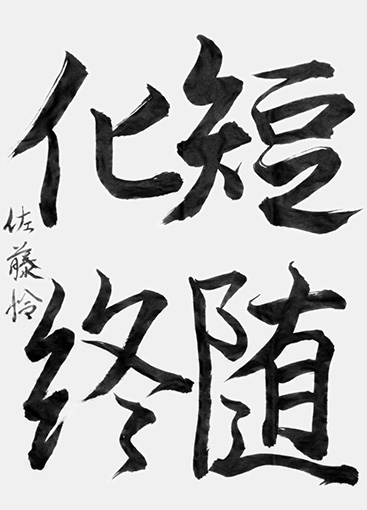 短随
化終
佐藤怜